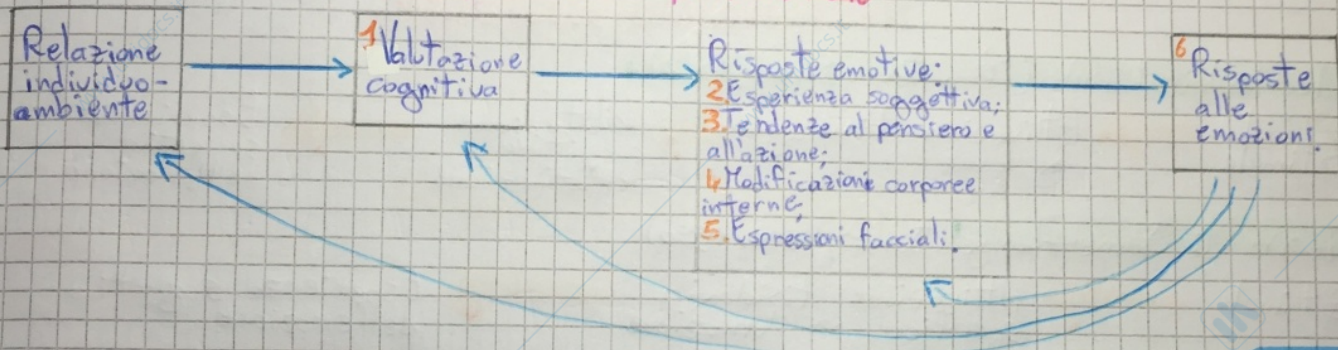 Relazione
individuo-
ambiente
1 Valutazione
cognitiva
Risposte emotive:
2. Esperienza soggettiva;
3. Tendenze al pensiero e
all'azione;
4. Modificazioni corporee
interne;
5. Espressioni facciali.
6 Risposte
alle
emozioni.